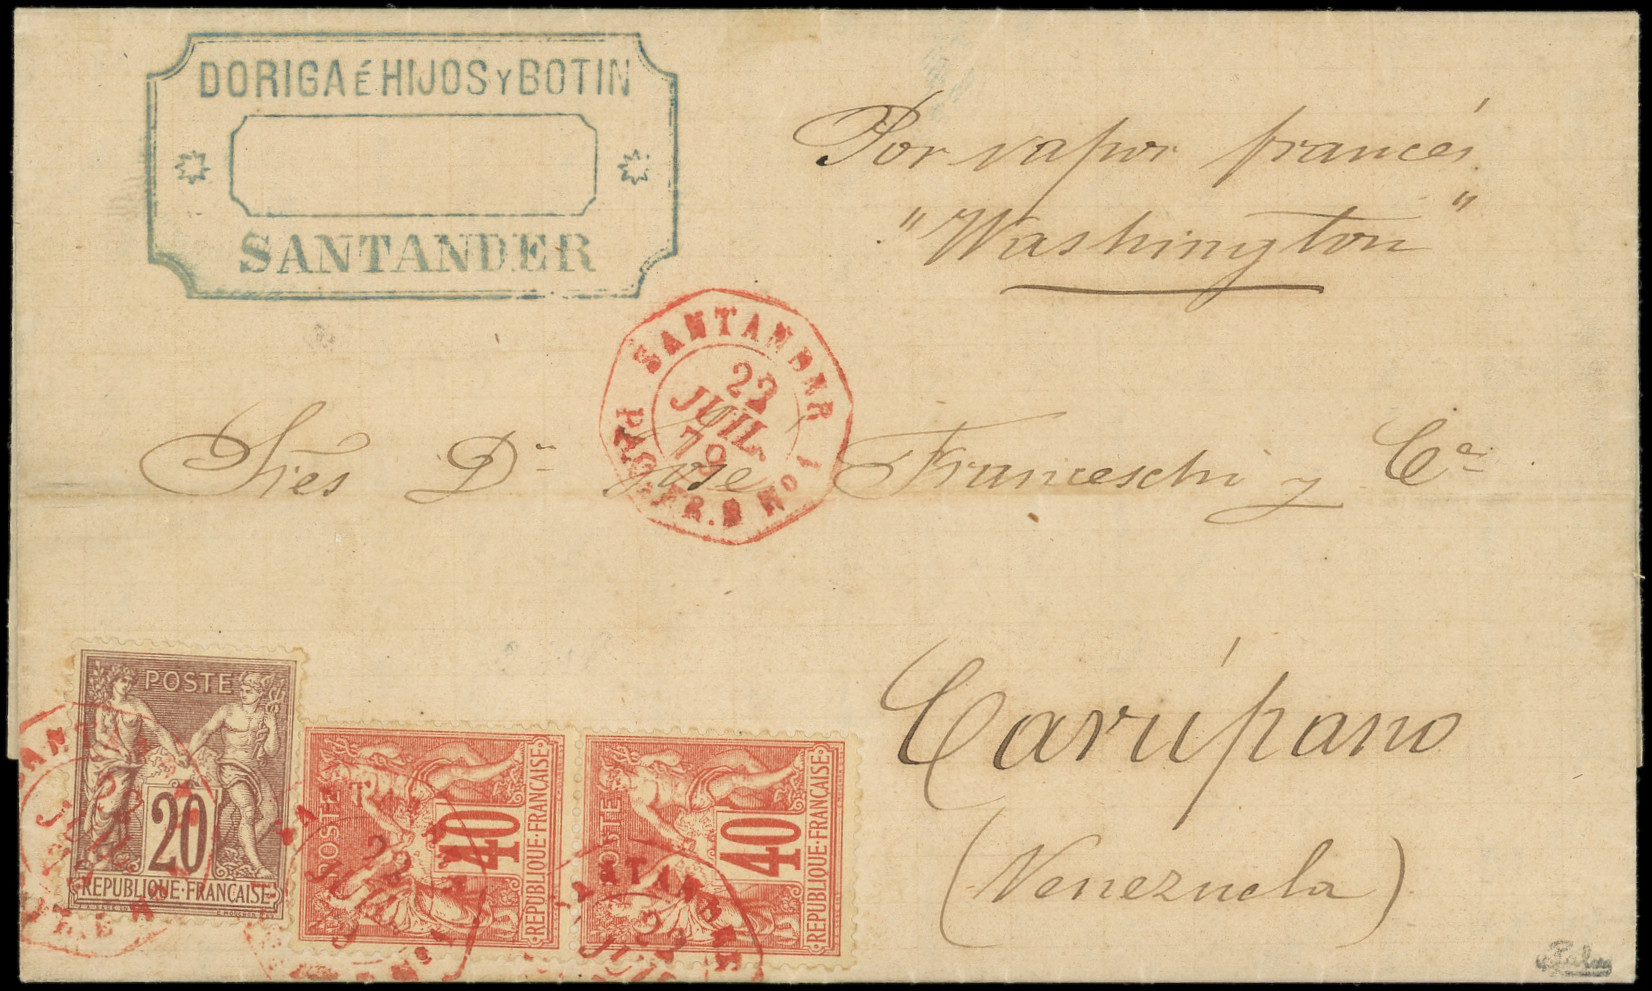 DORIGA É HIJOS Y BOTIN
SANTANDER
Por vapor francés
"Washington"
SANTANDER
22
JUIL.
79
PAQ. FR. B No 1
Sres Dn José Franceschi y Ca
Carúpano
(Venezuela)
POSTE
20
REPUBLIQUE·FRANÇAISE
POSTE
40
REPUBLIQUE·FRANÇAISE
SANTANDER
22
JUIL
POSTE
40
REPUBLIQUE·FRANÇAISE
SANTANDER
22
JUIL